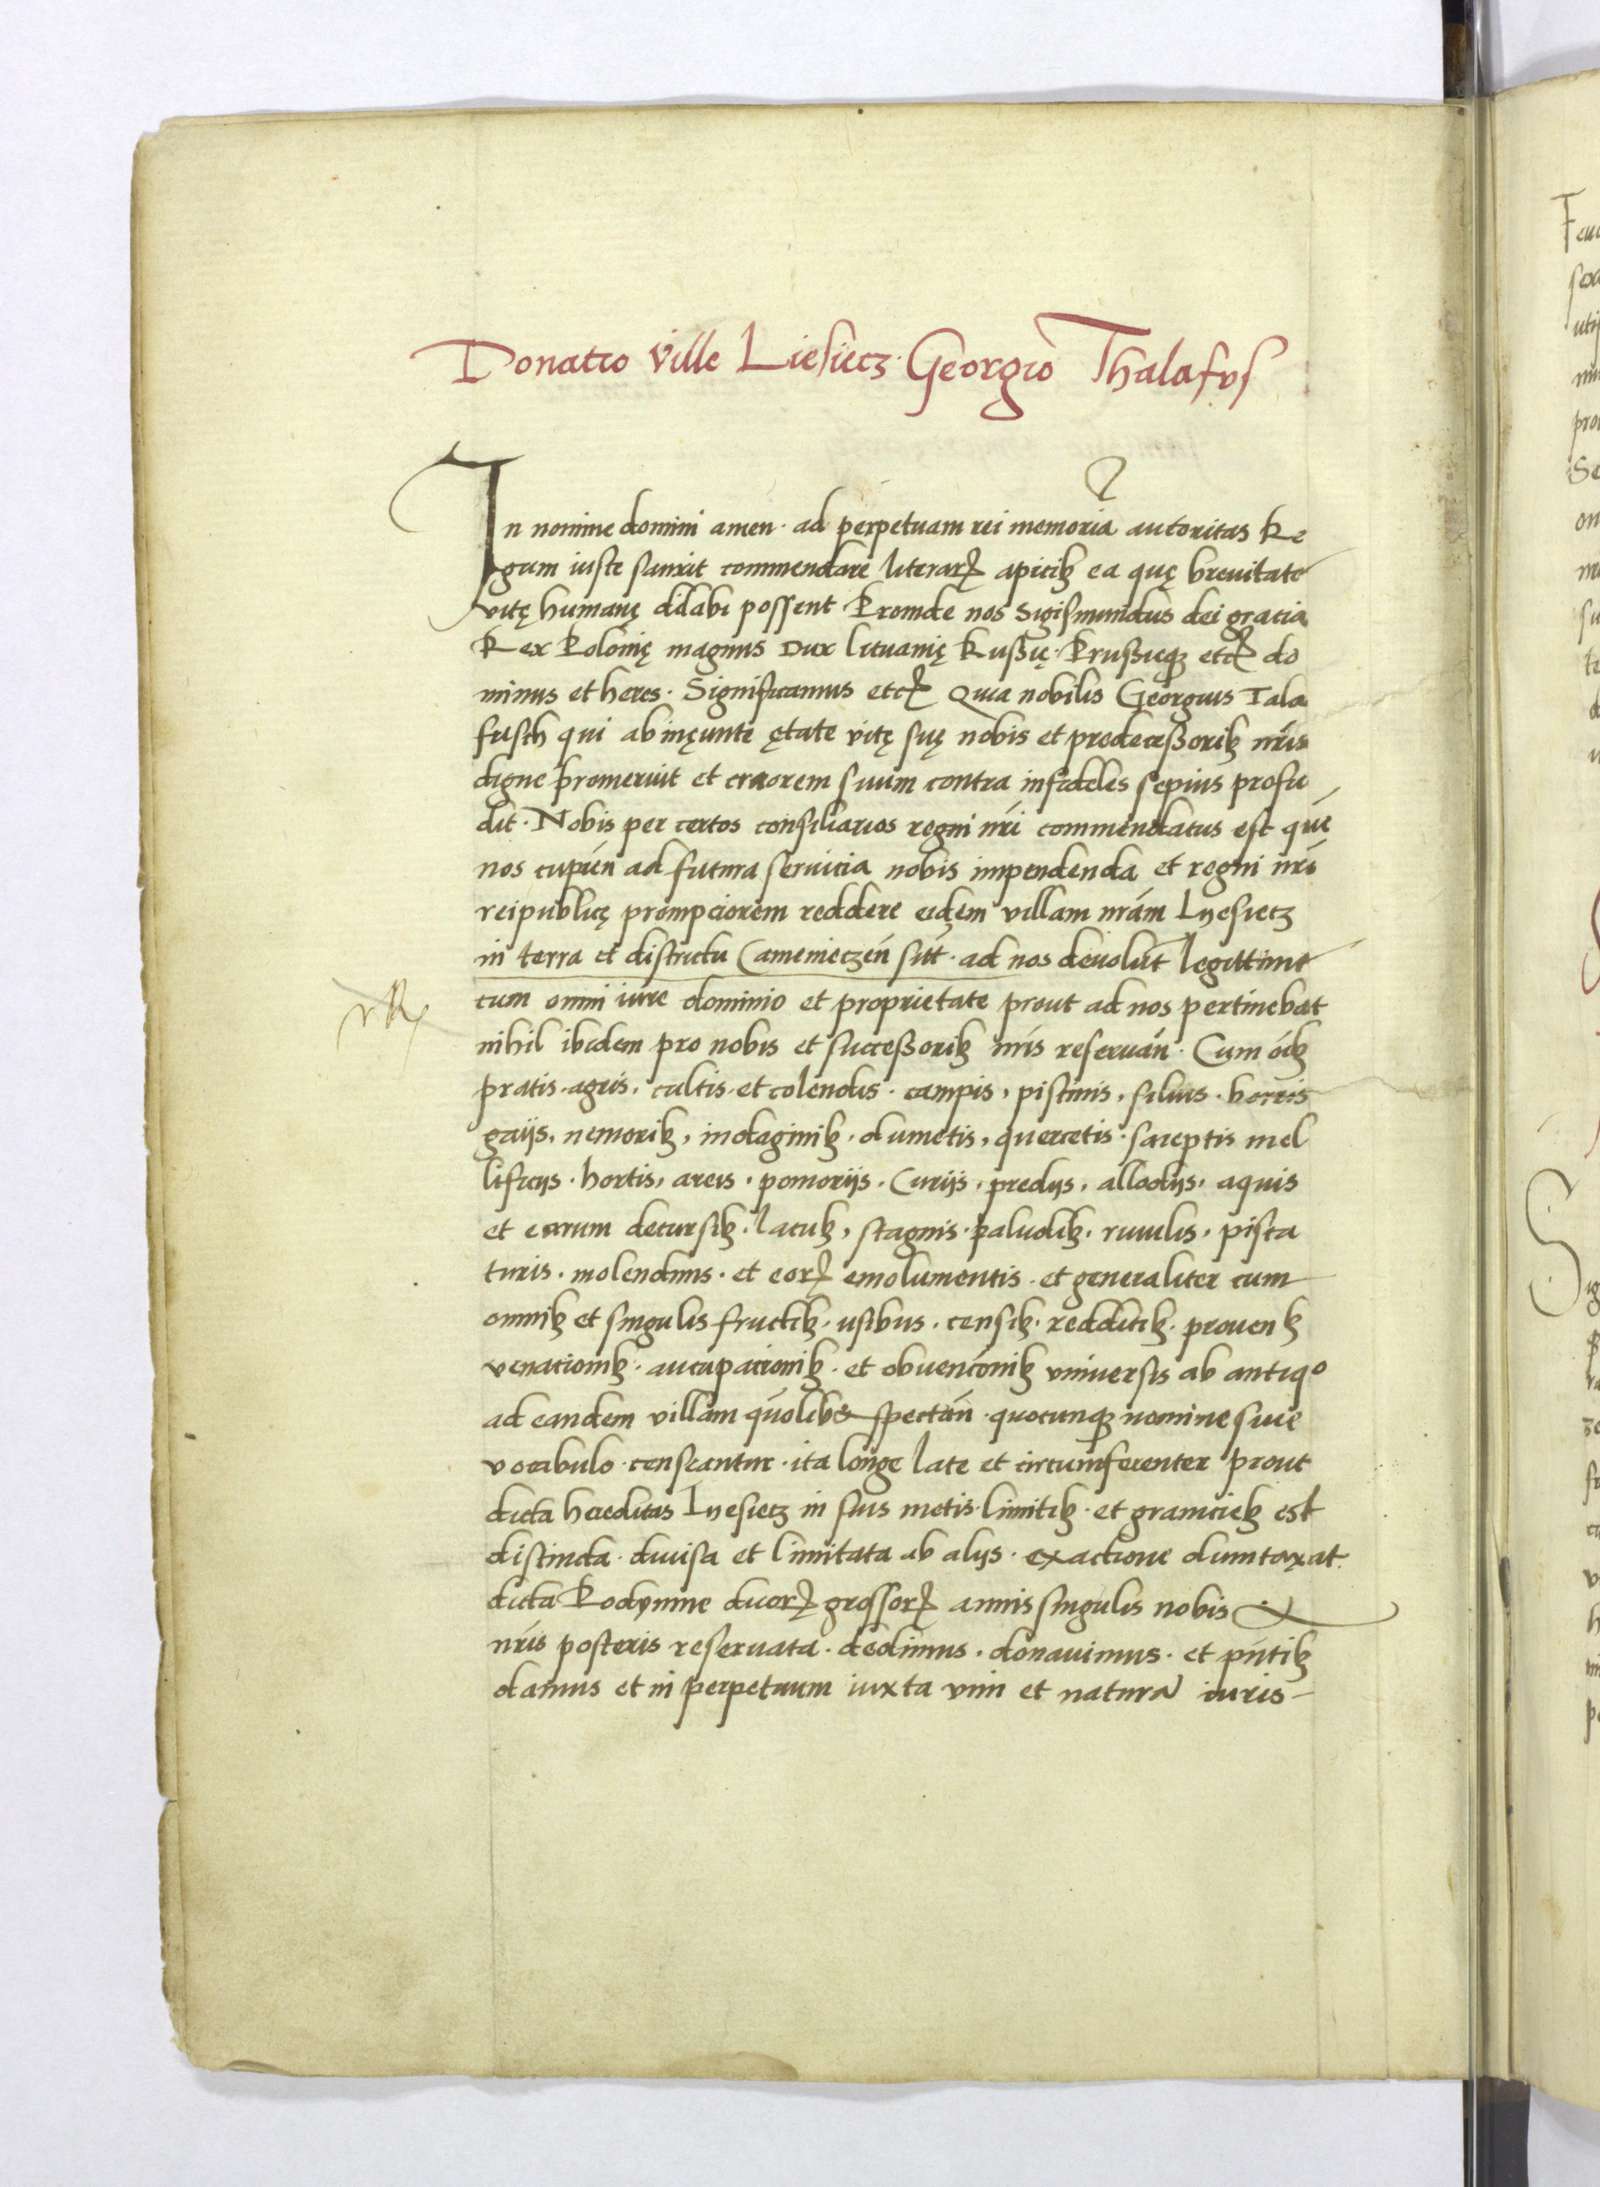 Donatio ville Liesiecz Georgio Thalafus
In nomine domini amen · ad perpetuam rei memoriā autoritas Re
gum iuste sanxit commendare literarꝝ apicibꝫ ea quę breuitate
vitę humanę dilabi possent Proinde nos Sigismundus dei gracia
Rex Polonię magnus Dux lituanię Russię · Prussieqꝫ etcꝫ do
minus et heres · Significamus etcꝫ Quia nobilis Georgius Tala
fusch qui ab ineunte ętate vitę suę nobis et predecessoribꝫ nr̄is
digne promeruit et cruorem suum contra infideles sepius profu
dit · Nobis per certos consiliarios regni nr̄i commendatus est quē
nos cupień ad futura seruicia nobis impendenda et regni nr̄i
reipublicę prompciorem reddere eidem villam nr̄am Lyesiecz
in terra et districtu Camenieczeń sitā · ad nos deuolutā legittime
cum omni iure dominio et proprietate prout ad nos pertinebat
nihil ibidem pro nobis et successoribꝫ nr̄is reseruań · Cum oīb
pratis · agris · cultis · et colendis · campis · piscinis · siluis · borris
gaijs · nemoribꝫ · indaginibꝫ · dumetis · quercetis · sceptis mel
lificijs · hortis · areis · pomorijs · Curijs · predijs · allodijs · aquis
et earum decursibꝫ · lacubꝫ · stagnis · paludibꝫ · riuulis · pisca
turis · molendinis · et eorꝝ emolumentis · et generaliter cum
omnibꝫ et singulis fructibꝫ · usibus · censibꝫ · redditibꝫ · prouenbꝫ
venacionibꝫ · aucupacionibꝫ · et obuencōnibꝫ vniuersis ab antiqo
ad eandem villam quōlibet spectań · quocunqꝫ nomine siue
vocabulo · censeantur · ita longe late et circumferenter prout
dicta hereditas Lyesiecz in suis metis · limitibꝫ · et graniciebꝫ est
distincta · diuisa et limitata ab alijs · exactione dumtaxat
dicta Podymne duorꝝ grossorꝝ annis singulis nobis &
nr̄is posteris reseruata · dedimus · donauimus · et pn̄tibꝫ
damus et in perpetuum iuxta vim et naturā iuris